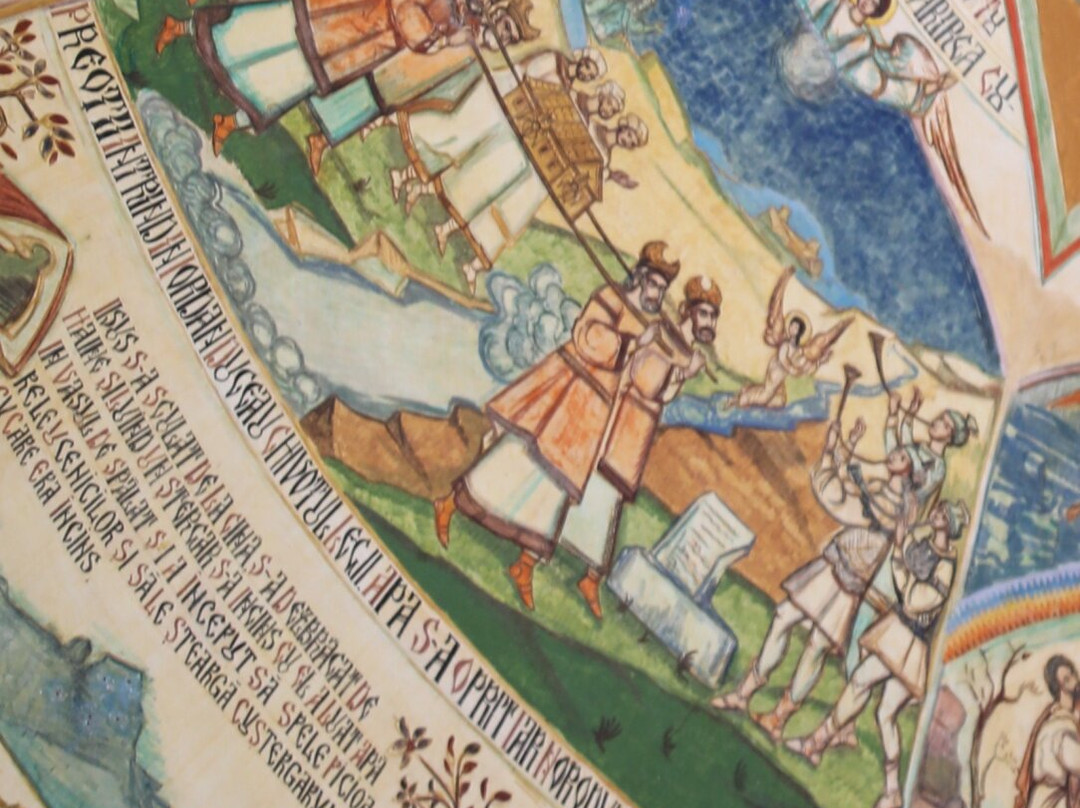 PREOTII INTRIND IN IORDAN DUCEAU CHIVOTUL LEGII APA S-A OPRIT IAR NORODU
IISUS S-A SCULAT DE LA CINA S-A DEZBRACAT DE
HAINE SI LUIND UN STERGAR S-A INCINS CU EL A LUAT APA
IN VASUL DE SPALAT SI A INCEPUT SĂ SPELE PICIOA
RELE UCENICILOR SI SĂ LE STEARGĂ CU STERGARU
CU CARE ERA INCINS.